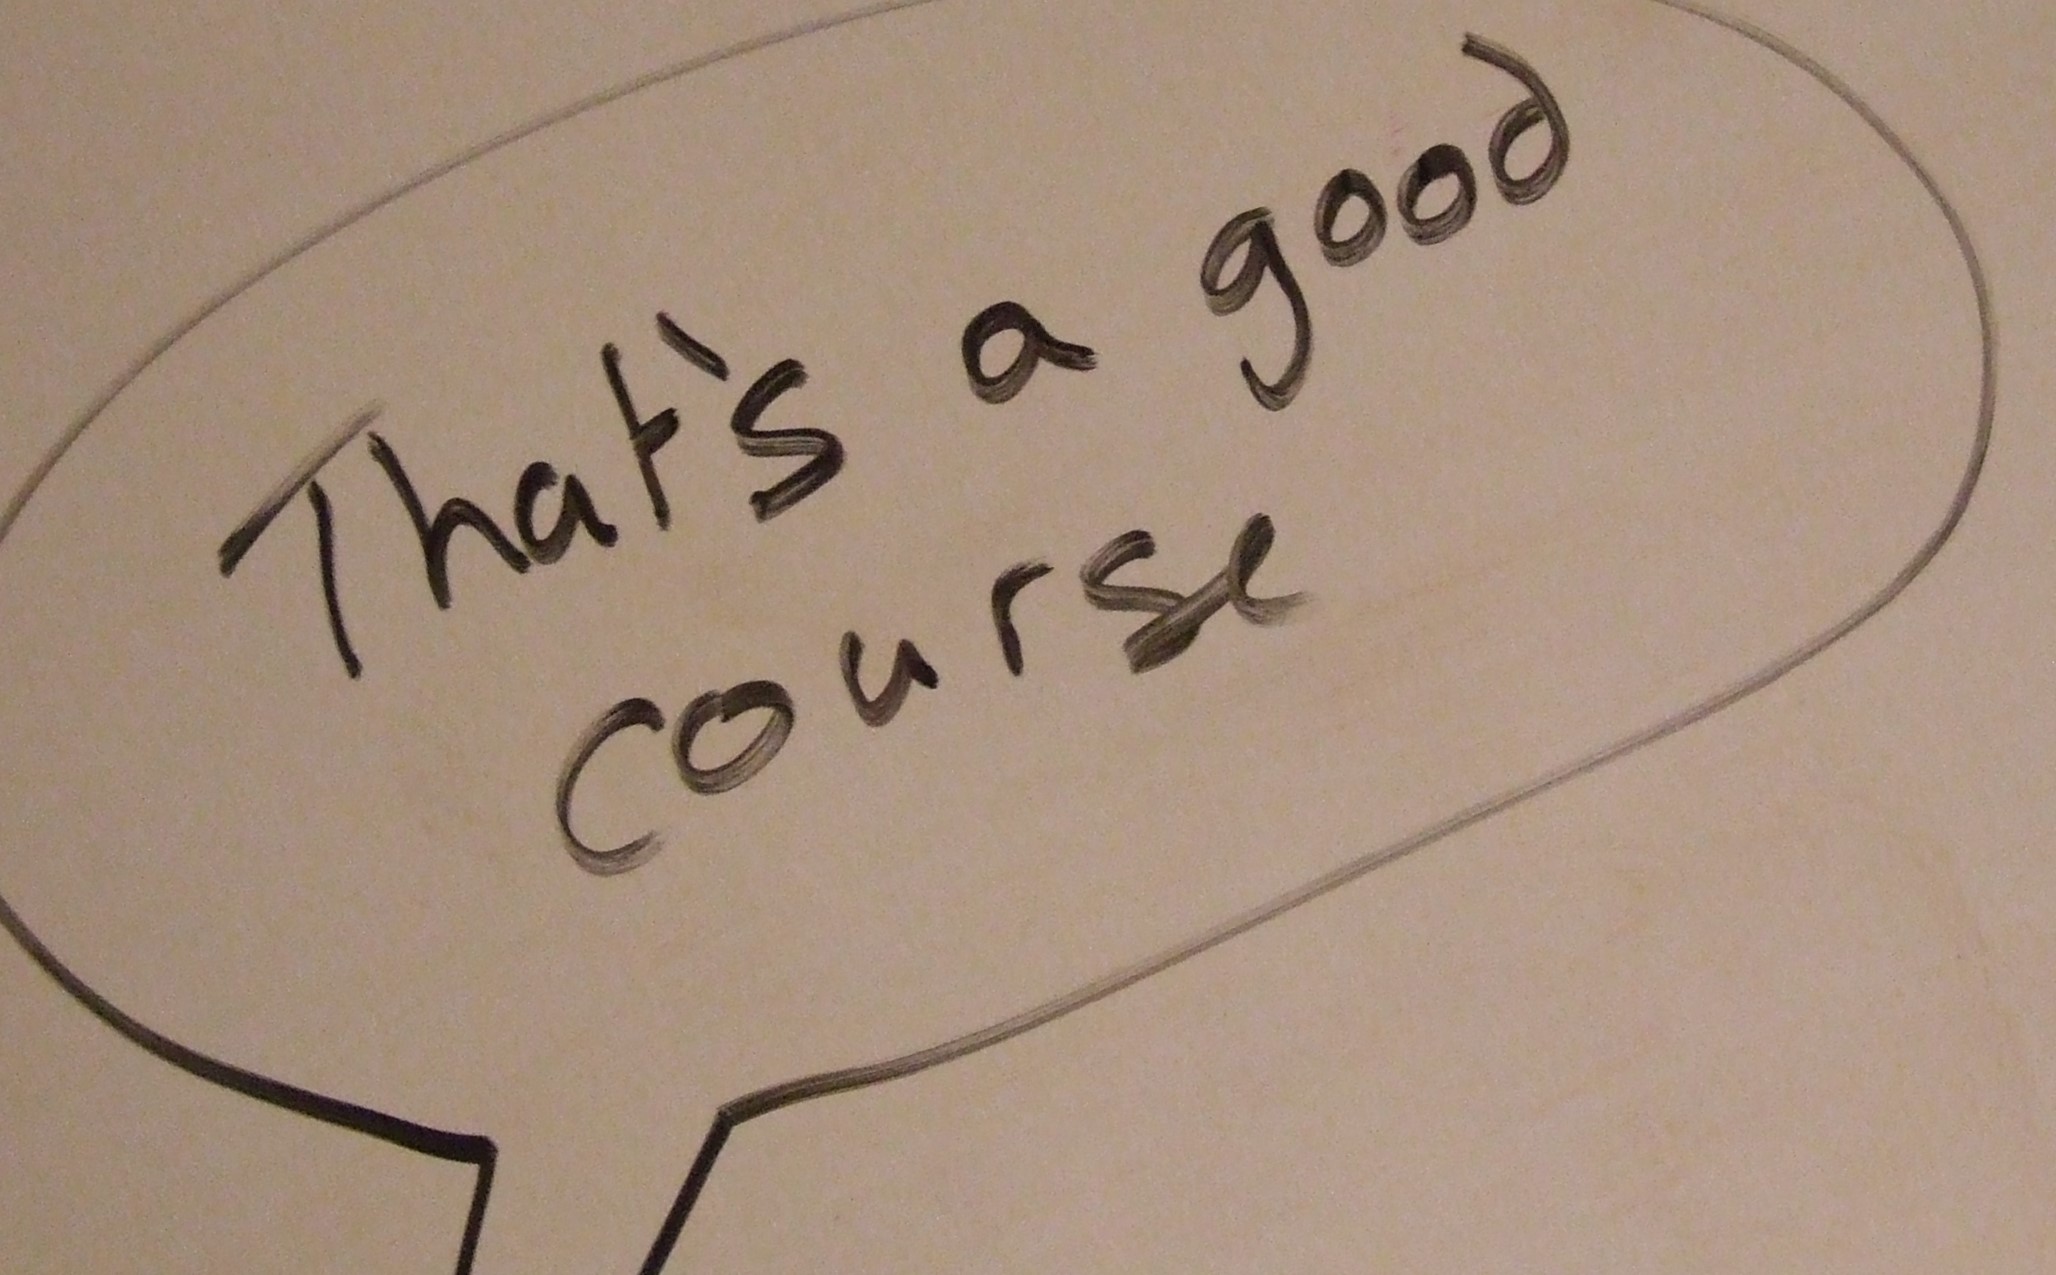 That's a good
course